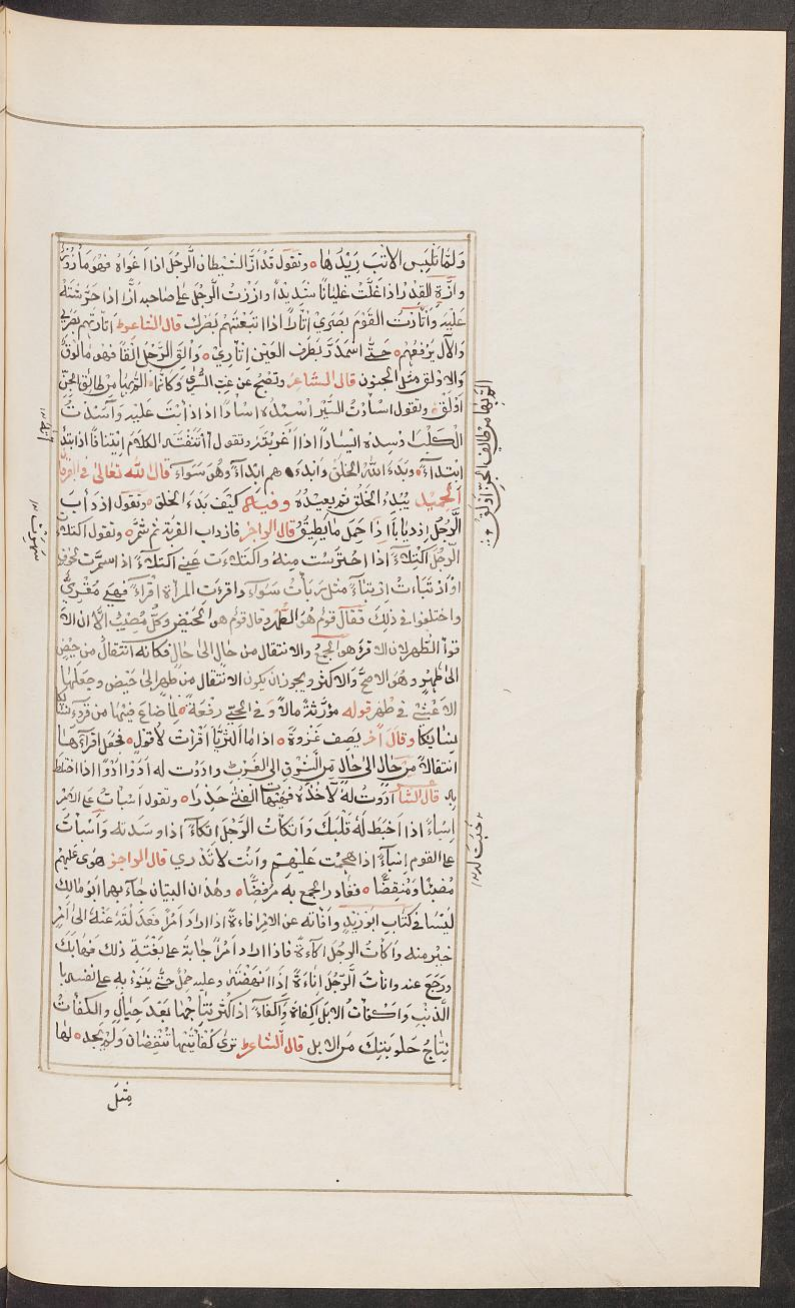 وَلمَّا تَلْبَس الاتبَ رَيْدُها ٥ وتقول قد أزَّ الشيطان الرَّجُلَ اذا اَغواهُ فهو مأزوز
وازَّةِ القِدْرُ اذا غَلَتْ غلَيانًا شديدًا وازَزْتُ الرَّجُل على صاحبه اَزًّا اذا حَرَّشتَهُ
عَليْه وَاَتْأرتُ القَوْمَ بصَري اِتْأراً اذا اتبعتهُم بَصَرك قال الشاعر اتأرتهم بصَري
وَالآل يَرْفعُهُم ٥ حَتَّى اسْمَدَرَّ بطَرف العَيْن اتآري ٥ وَاُلِقَ الرَّجُل اَلَقًا فهو مألوقٌ
وَالاوْلق مثل الجنون قال الشاعر وتصْبحُ عَن غِب السُّرى وَكانما ٥ المَّ بها من طائفِ الجنِّ
اَوْلَقُ ٥ وتقول اسأدْتُ السَّيْر اُسْئِدُه اسآدًا اذا ادأبْتَ عَليْه وَآسَدْتُ
الكَلْبَ اوسِدهُ ايسَاداً اذا اَغريتَهُ وتقول ائْتنفتُ الكلامَ ائتنافًا اذا ابتدأته
ابتداءً ٥ وبَدَءَ اللهُ الخلقَ وَابدَء هم ابْدآءً وهُمَ سَوَاء قال الله تعالى في القرآن
المجيد يُبْدِءُ الخَلْقَ ثم يعيْدُهُ وفيه كيْفَ بَدَءَ الخَلق ٥ وتقول ازدَأبَ
الرَّجُل ازديابًا اذا حَمِل ما يُطِيْقُ قال الراجز فازداب القربة ثم شمَّر ٥ وتقول اكتلأ
الرَّجُل اكتِلاءً اذا احتَرسْت منهُ واكتلاءَت عَيني اكتلاءً اذا اسمرَّت
اوْ ارتبَاءتُ ارتباءً مثل رَبأتُ سَوَاء واقرءَت المرأة اقراءً فهيَ مُقْرِيٌ
واختلفوا في ذلكَ فقال قومٌ هُوَ الطُّهر وقال قومٌ هو الحَيْض وَكلٌّ مُصِيبٌ الّا ان الاَ
قوأ الطهر لان القرء هو الجمعُ والانتقال من حَالٍ الى حَالٍ فكانه انتقالٌ من حيضٍ
الى طُهْرٍ وهُوَ الاصحّ وَالاكثر ويجوز ان يكون الانتقال من طهر الى حَيْض وجعَلها
الاعشى في طهر قوله مؤَرّثة مالاً وَفي الحيِّ رفعَة ٥ لِما ضاع فيهَا من قروء نسا
لنسايكا وقال آخر يَصِف غَزوةً ٥ اذا ما الثريَّا اَقرأتْ لاُفولٍ ٥ فجعَل اقرآءها
انتقالها من حالٍ الى حَالٍ من الشرق الى الغرب وادوْت له اَدْواً اذا
قال الشا ادَوْتُ لهُ لآخُذَهُ فهَيْهاتَ الفتى حَذِراً ٥ وتقول اسبأت على الامر
اسباءً اذا اَخبَط لهُ قلْبَكَ وَاَتكأتُ الرَّجُل اتكاءً اذا وسَّدته وَانبأتُ
على القوم انباءً اذا هجمْت عليهم وأنت لا تدري قال الراجز هَوى عَليهم
مُصْبئًا ومُنقِضًّا ٥ فغادر الجمع به مُرفضًّا ٥ وهذان البيتان جاء بهما ابو مالك
ليسا في كتاب ابوزيد وافأته عن الامر افاءةً اذا اراد اَمرًا فعَدلته عنهُ الى امرٍ
خيْرٍ منه واكأتُ الرجُل اكاءةً فاذا اراد امْراً جابهَ على بغْتةِ ذلك فهابَكَ
ورجَعَ عنه واناْتُ الرَّجُل اناءةً اذا اَنهَضْتَهُ وعليه حِمْلٌ حتَّى يَنوء به على نفسه يا
الذنب وَاكفأتُ الابلَ اكفاءً وَاكفاءً اذا كثر نِتاجُها بَعْدَ حِيَالٍ والكفاَتُ
نِتاجُ حَلوبتكَ مَن الابل قال الشاعر ترى كَفأتَيْها تنقضان وَلَم يَجد ٥ لها
مثلَ
المَّ بها من طائف الجنّ اَوْلق